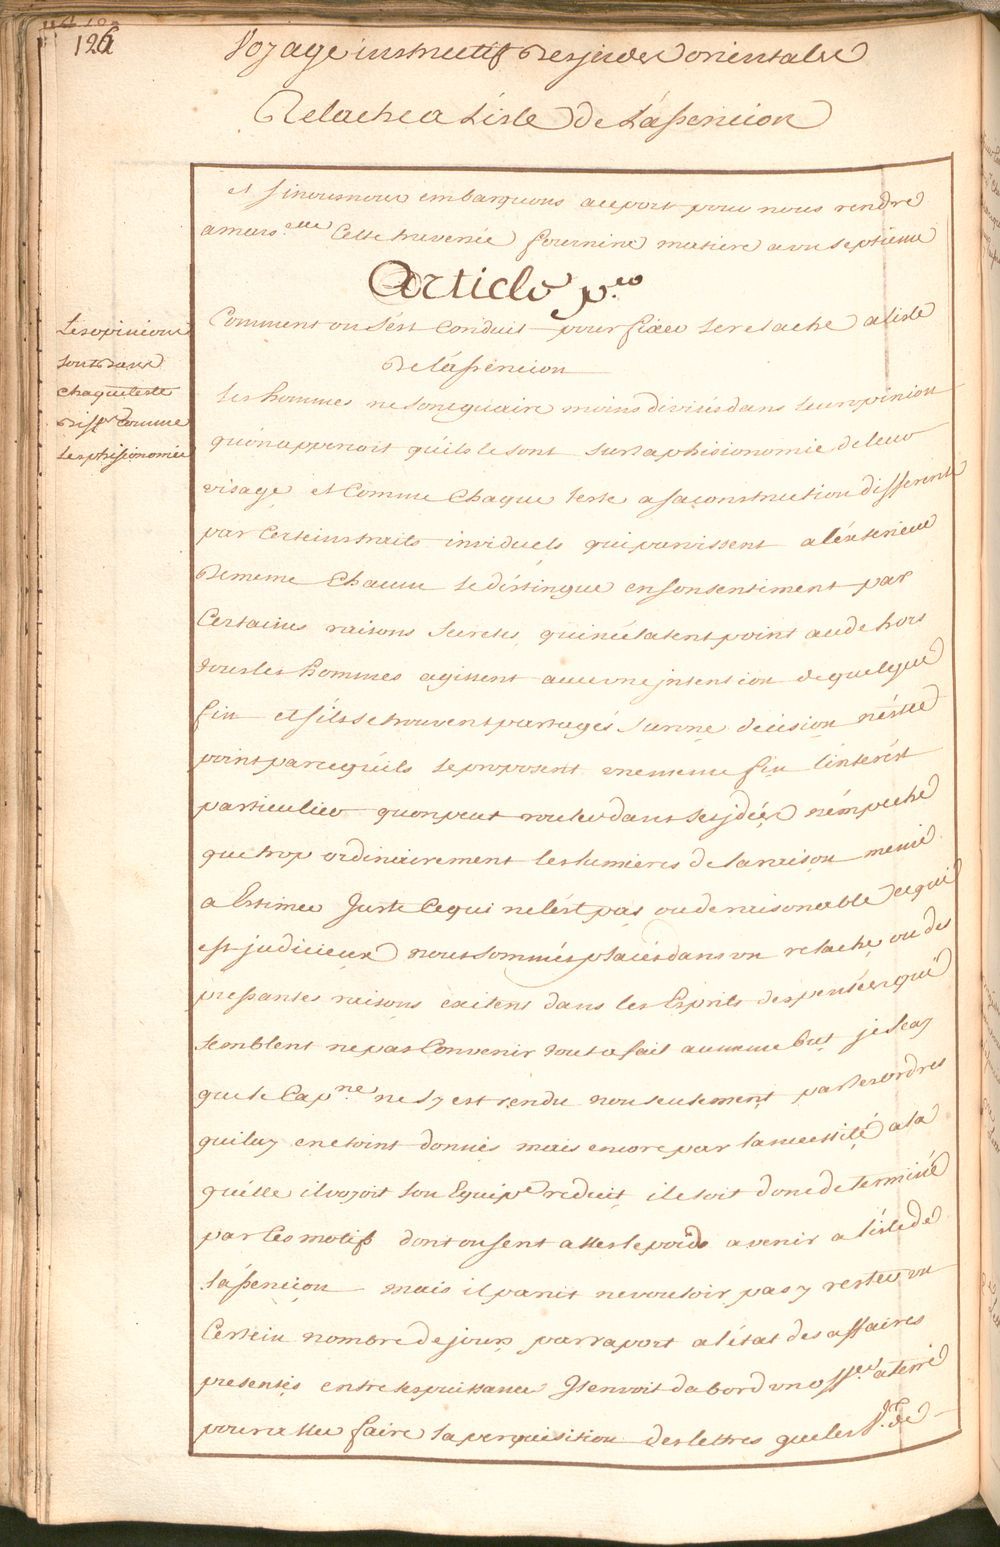 126
Voyage instructif des jndes orientales
Relache a L'isle de L'assencion
et si nous nous embarquons au port pour nous rendre
a mars.elle Cette traversée fournira matiere a un septieme
Article p.er
Comment on s'est Conduit pour fixer le relache a l'isle
de l'assencion
Les opinions
sont dans
chaque teste
diff.tes comme
les phisionomies
Les hommes ne sont guaire moins divisés dans leur opinion
qu'on apperçoit qu'ils le sont sur la phisionomie de leur
visage, et Comme Chaque teste a sa construction differente
par Certeins traits inviduels qui parvissent a l'exterieur
de meme Chacun se distingue en son sentiment par
Certaines raisons secretes qui n'éclatent point au dehors
tous les hommes agissent avec une jntention de quelque
fin et s'ils se trouvent partagés sur une decision n'est ce
point parce qu'ils se proposent une meme fin l'interést
particulier qu'on peut rouler dans ses jdées n'émpeche
que trop ordinairement les lumieres de la raison meme
a Estimer Juste Ce qui ne l'est pas ou deraisonable Ce qui
est judicieux nous sommes placés dans un relache ou des
pressantes raisons exitent dans les Esprits des pensées qui
semblent ne pas Convenir tout a fait au meme but je sçay
que le Cap.ne ne s'y est rendu non seulement par les ordres
qui luy en etoint donnés mais encore par la necessité a la
quélle il voyoit son Equip.e reduit, il etoit donc determiné
par Ces motifs dont on sent assez le poids a venir a l'isle de
l'assencion mais il parut ne vouloir pas y rester un
Certein nombre de jours par raport a l'état des affaires
presentes entre les puissances Jl envoit d'abord un off.er a terre
pour aller faire la perquisition des lettres que les S.rs de